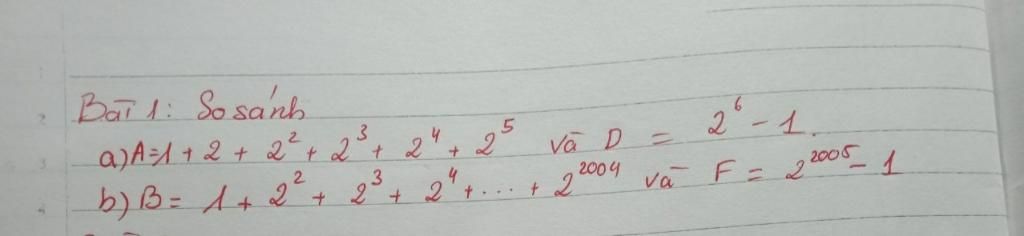 Bài 1: So sánh
a) A=1 + 2 + 2² + 2³ + 2⁴ + 2⁵ và D = 2⁶ - 1.
b) B = 1 + 2² + 2³ + 2⁴ + ... + 2²⁰⁰⁴ và F = 2²⁰⁰⁵ - 1